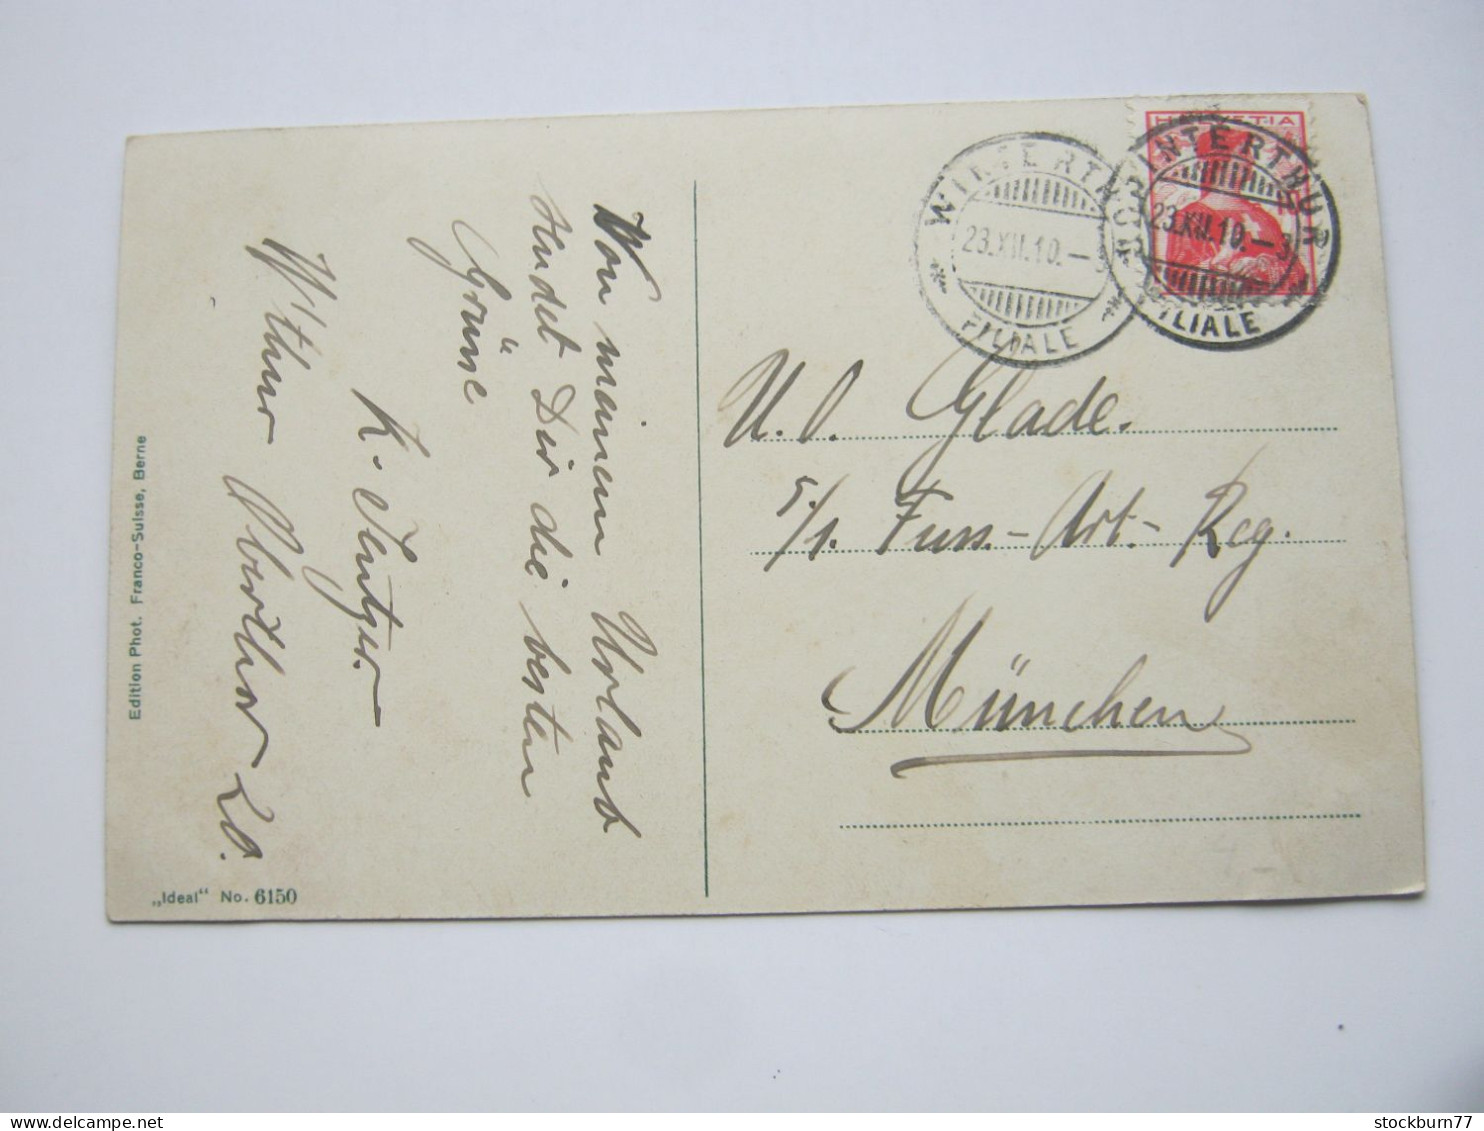 Von meinem Urlaub
sendet Dir die besten
Grüsse
K.
W'thur
Edition Phot. Franco-Suisse, Berne
„Ideal“ No. 6150
HELVETIA
WINTERTHUR
23.XII.10.—3
FILIALE
WINTERTHUR
23.XII.10.—3
FILIALE
U. O. Glade.
5./1. Fuss.-Art.-Reg.
München
stockburn77